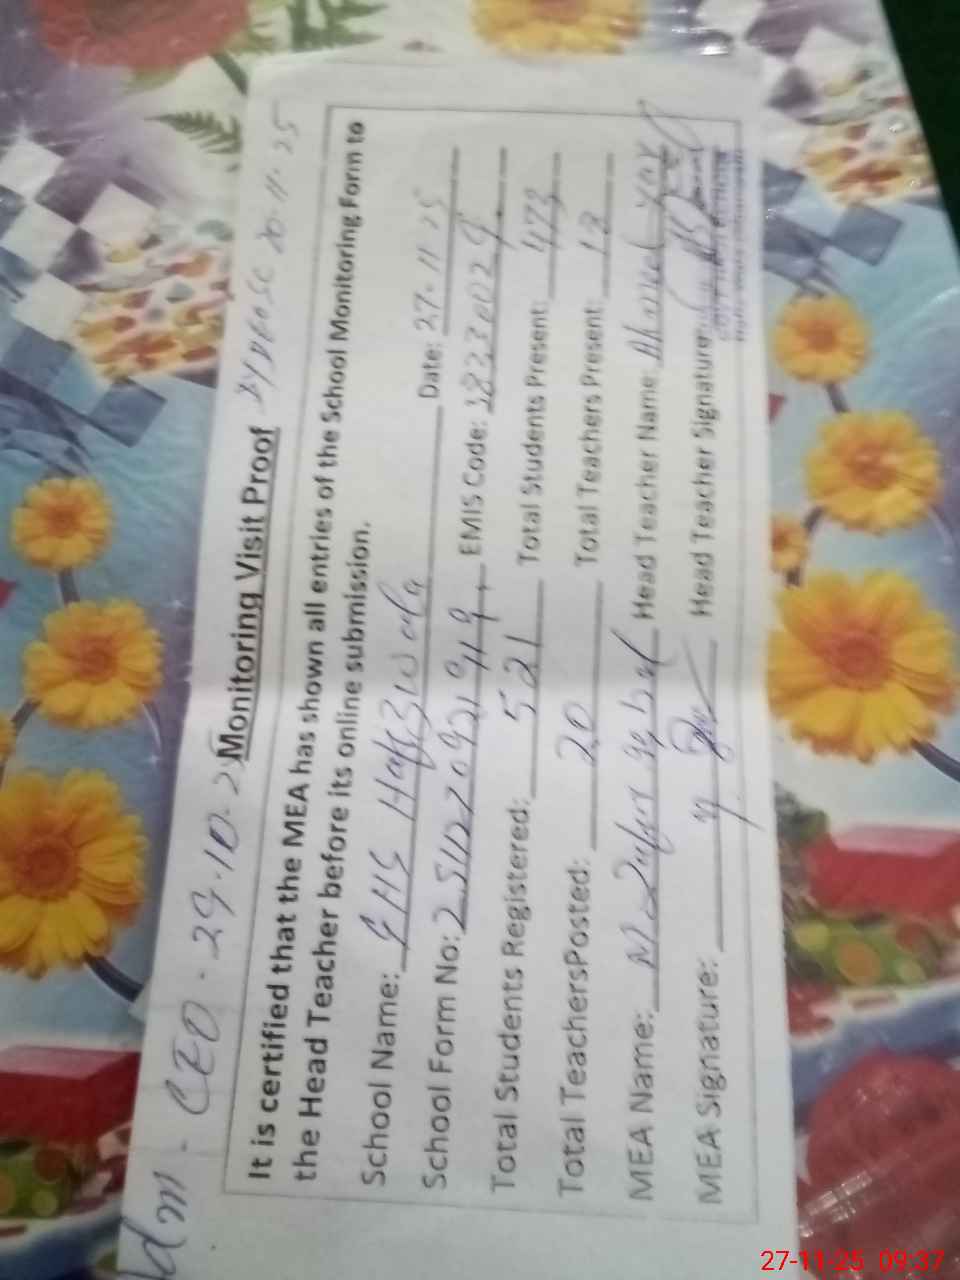 Adm - CEO - 29-10-2
Monitoring Visit Proof DyDEOSE 20-11-25
It is certified that the MEA has shown all entries of the School Monitoring Form to
the Head Teacher before its online submission.
School Name: Date: 27-11-25
School Form No: EMIS Code: 38230029
Total Students Registered: 521 Total Students Present: 473
Total TeachersPosted: 20 Total Teachers Present: 13
MEA Name: Head Teacher Name: Ahmed Yar
MEA Signature: Head Teacher Signature:
27-11-25 09:37